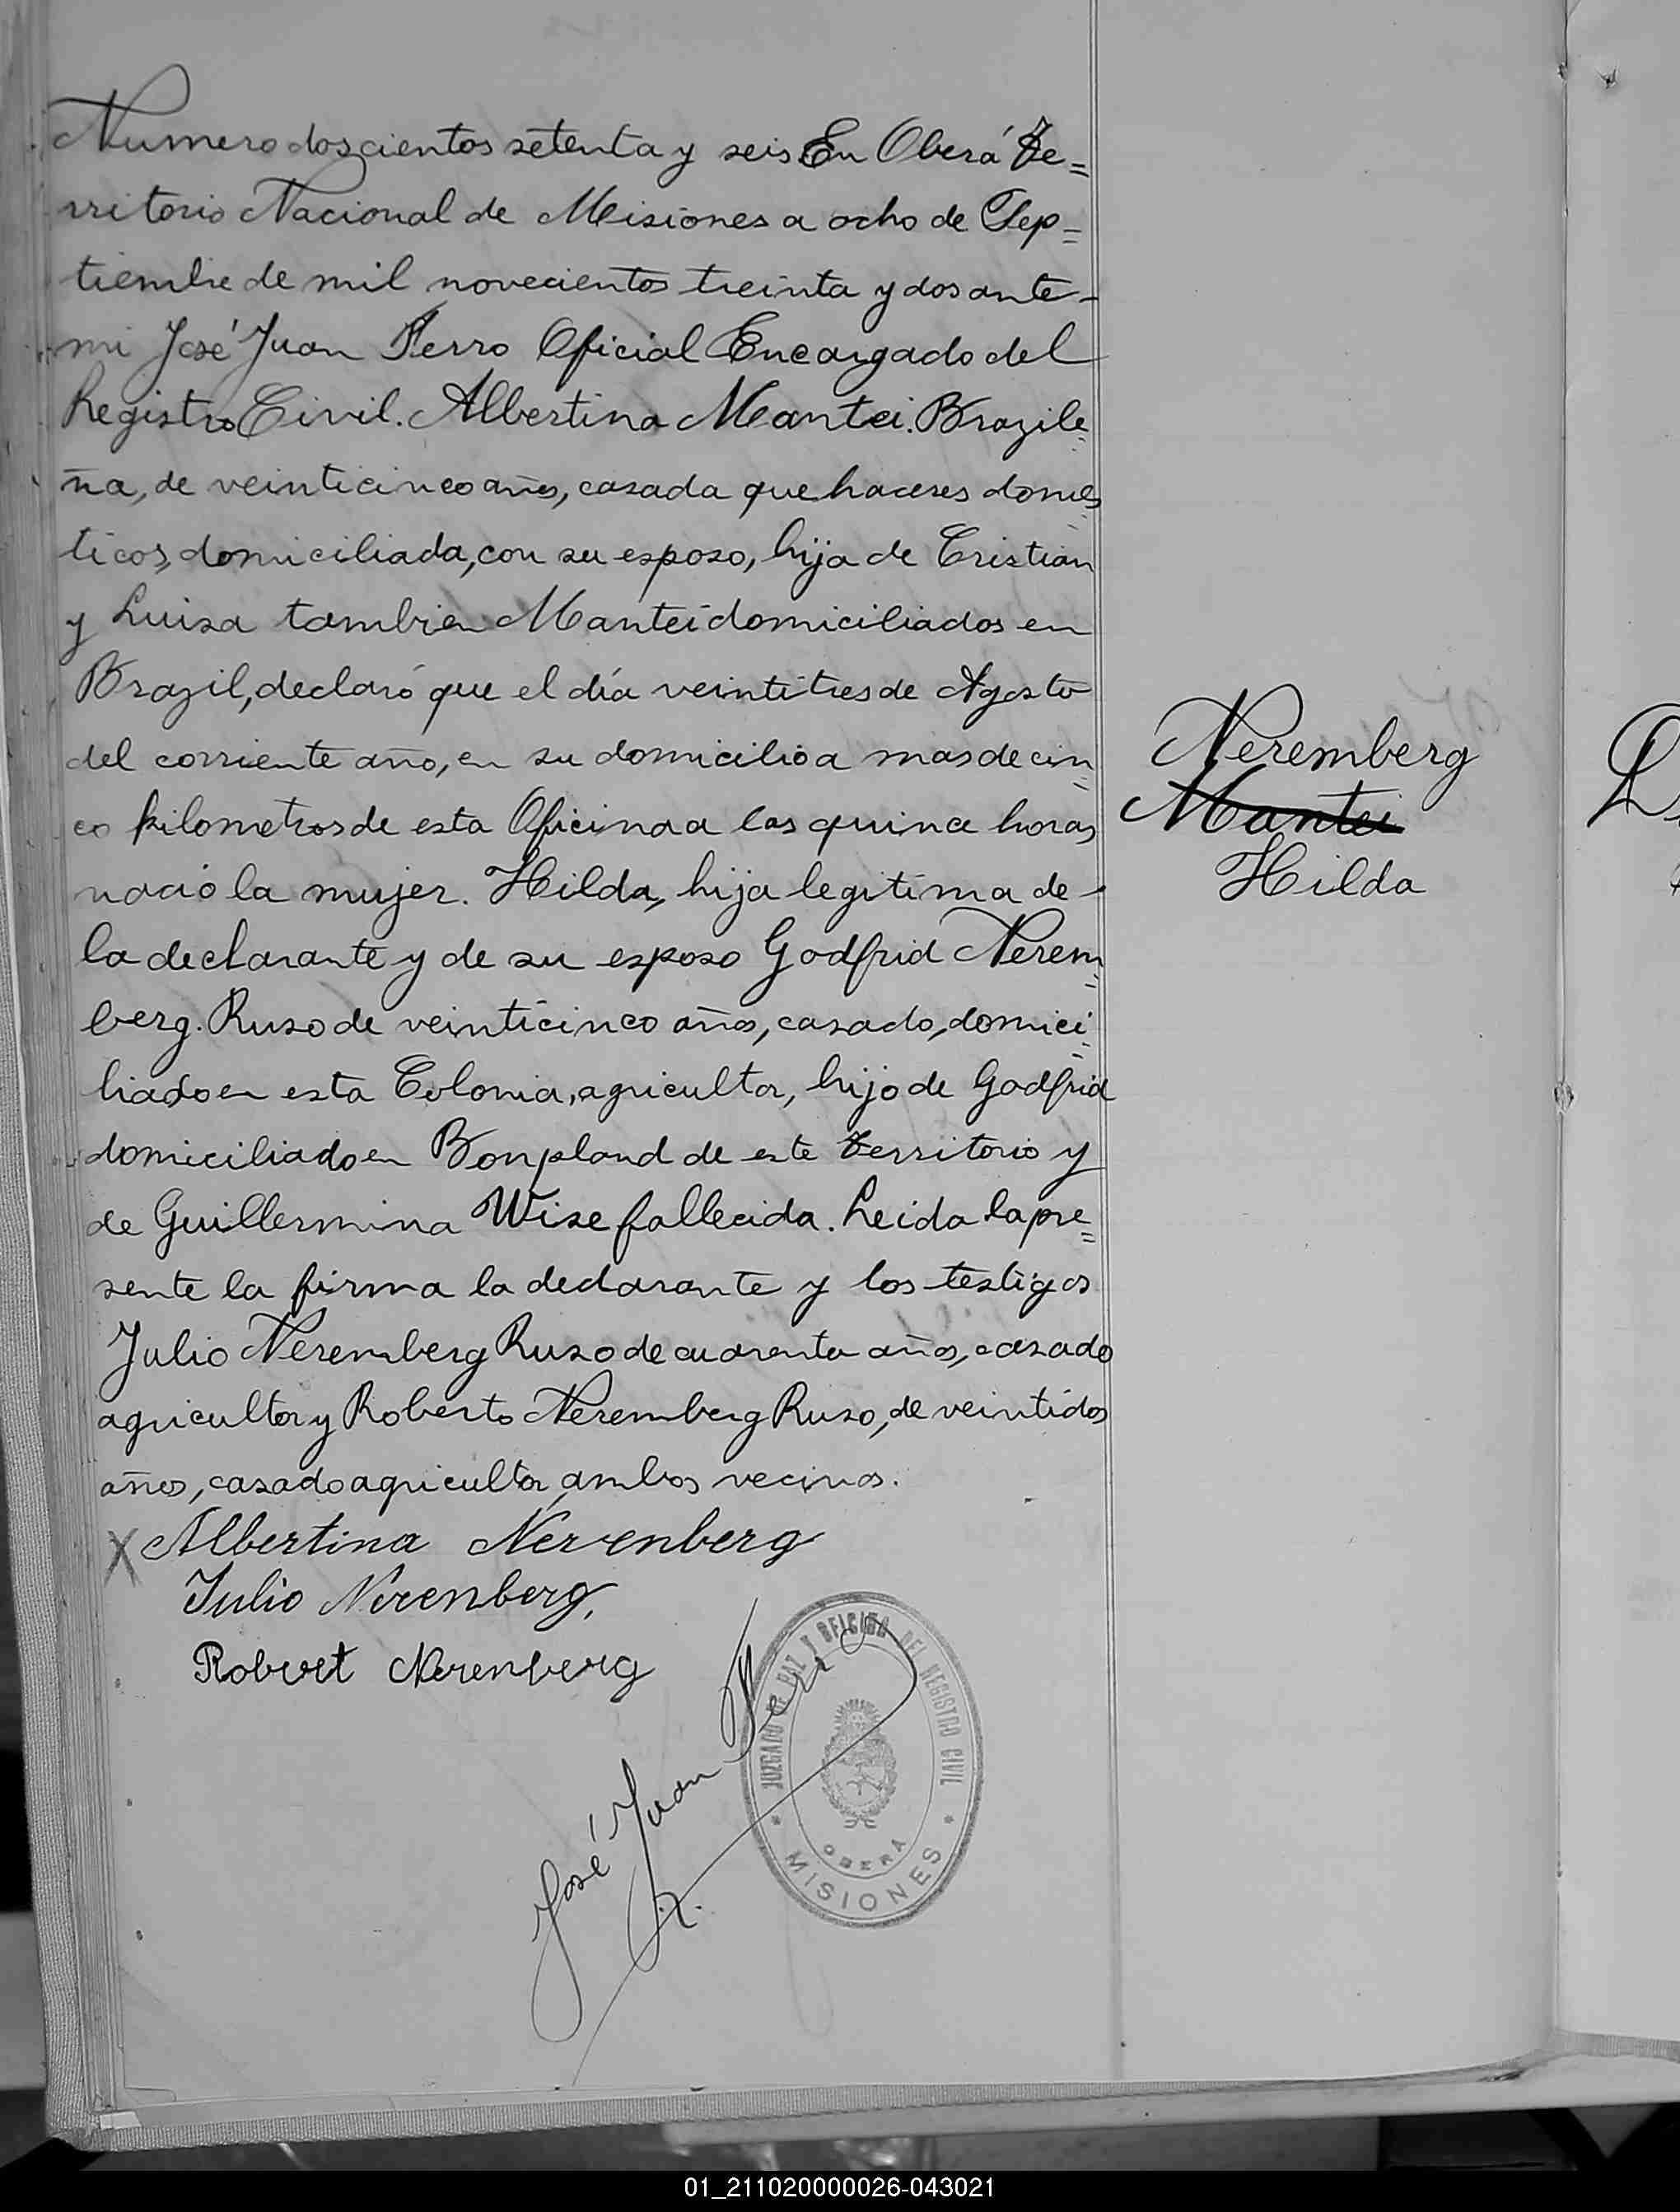 Numero doscientos setenta y seis. En Oberá Te=
rritorio Nacional de Misiones a ocho de Sep=
tiembre de mil novecientos treinta y dos ante-
mi José Juan Ferro Oficial Encargado del
Registro Civil. Albertina Mantei. Brazile=
ña, de veinticinco años, casada quehaceres domes=
ticos, domiciliada, con su esposo, hija de Cristian
y Luisa tambien Mantei domiciliados en
Brazil, declaró que el día veintitres de Agosto
del corriente año, en su domicilio a mas de cin=
co kilometros de esta Oficina a las quince horas
nació la mujer. Hilda, hija legitima de-
la declarante y de su esposo Godfrid Nerem=
berg. Ruso de veinticinco años, casado, domici=
liado en esta Colonia, agricultor, hijo de Godfrid
domiciliado en Bonpland de este Territorio y
de Guillermina Wise fallecida. Leida la pre=
sente la firma la declarante y los testigos
Julio Neremberg Ruso de cuarenta años, casado
agricultor y Roberto Neremberg Ruso, de veintidos
años, casado agricultor, ambos vecinos.
X Albertina Nerenberg
Julio Nerenberg,
Robert Nerenberg
José Juan Ferro
JUZGADO DE PAZ Y OFICINA DEL REGISTRO CIVIL
OBERÁ
* MISIONES *
Neremberg
Mantei
Hilda
01_211020000026-043021